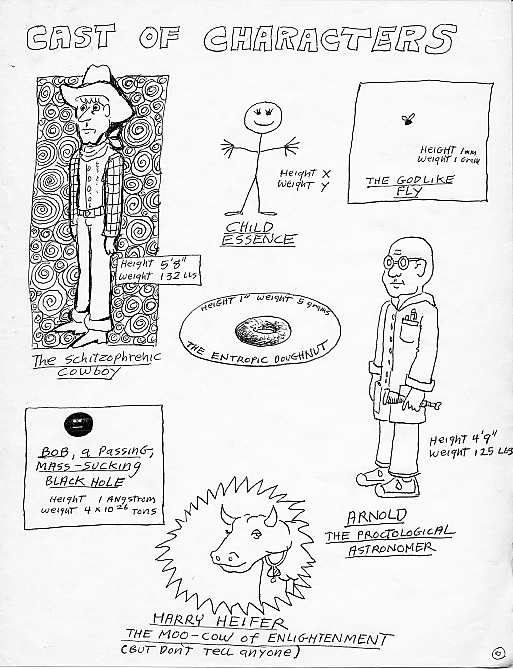 CAST OF CHARACTERS
Height 5'8"
Weight 132 Lbs
The Schitzophrenic
COWBOY
Height X
Weight Y
CHILD
ESSENCE
Height 1mm
Weight 1 Gram
THE GODLIKE
FLY
HEIGHT 1" WEIGHT 5 grams
THE ENTROPIC DOUGHNUT
Height 4'9"
Weight 125 Lbs
ARNOLD
THE PROCTOLOGICAL
ASTRONOMER
BOB, a PASSING,
MASS-SUCKING
BLACK HOLE
Height 1 Angstrom
Weight 4 x 10 26 Tons
HARRY HEIFER
THE MOO-COW of ENLIGHTENMENT
(BUT DON'T TELL anyone)